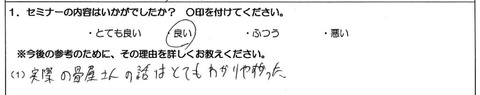 1．セミナーの内容はいかがでしたか？ ○印を付けてください。
・とても良い ・良い ・ふつう ・悪い
※今後の参考のために、その理由を詳しくお教えください。
(1) 実際の畳屋さんの話はとてもわかりや易かった